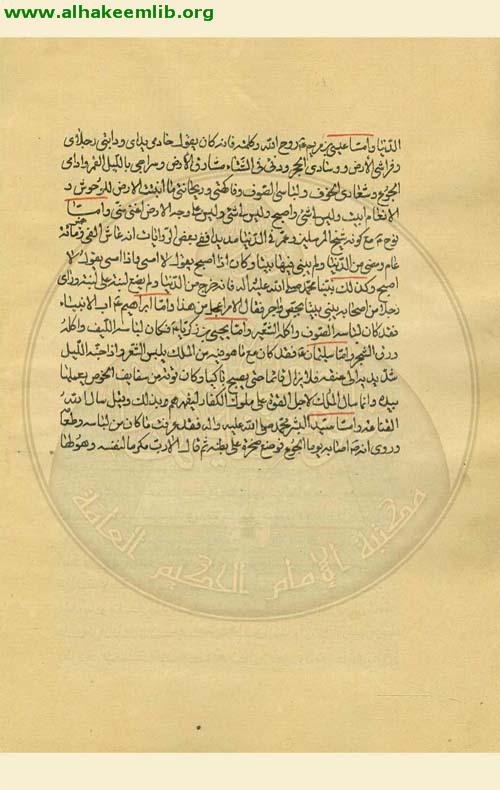 www.alhakeemlib.org
الدنيا واما عيسى بن مريم ع روح الله وكلمته فانه كان يقول خادمى يداى ودابتى رجلاى
وفراشى الارض ووسادى الحجر ودفئى فى الشتاء مشارق الارض وسراجى بالليل القمر وادامى
الجوع وشعارى الخوف ولباسى الصوف وفاكهتى وريحانتى ما انبتت الارض للوحوش و
الانعام ابيت وليس لى شئ واصبح وليس لى شئ وليس على وجه الارض اغنى منى واما
نوح ع مع كونه شيخ المرسلين وعمر فى الدنيا مديدا ففى بعض الروايات انه عاش الفى
عام ومضى من الدنيا ولم يبن فيها بيتا وكان اذا اصبح يقول لا امسى واذا امسى يقول لا
اصبح وكذلك نبينا محمد صلى الله عليه وآله فانه خرج من الدنيا ولم يضع لبنة على لبنة وراى
رجلا من اصحابه يبنى بيتا بجص واجر فقال الامر اعجل من هذا واما ابراهيم ع اب الانبياء
فقد كان لباسه الصوف واكله الشعير واما يحيى بن زكريا ع فكان لباسه الليف واكله
ورق الشجر واما سليمان ع فقد كان مع ما هو فيه من الملك يلبس الشعر واذا جنه الليل
شد يديه الى عنقه فلا يزال قائما حتى يصبح باكيا وكان قوته من سفايف الخوص يعملها
بيده وانما سال الملك لاجل القوة على ملوك الكفار ليقهرهم بذلك وقيل سال الله
القناعة واما سيد البشر محمد صلى الله عليه وآله فقد عرفت ما كان من لباسه وطعامه
وروى انه ص اصابه يوما الجوع فوضع صخرة على بطنه ثم قال الا رب مكرم لنفسه وهو لها
مكتبة الإمام الحكيم العامة